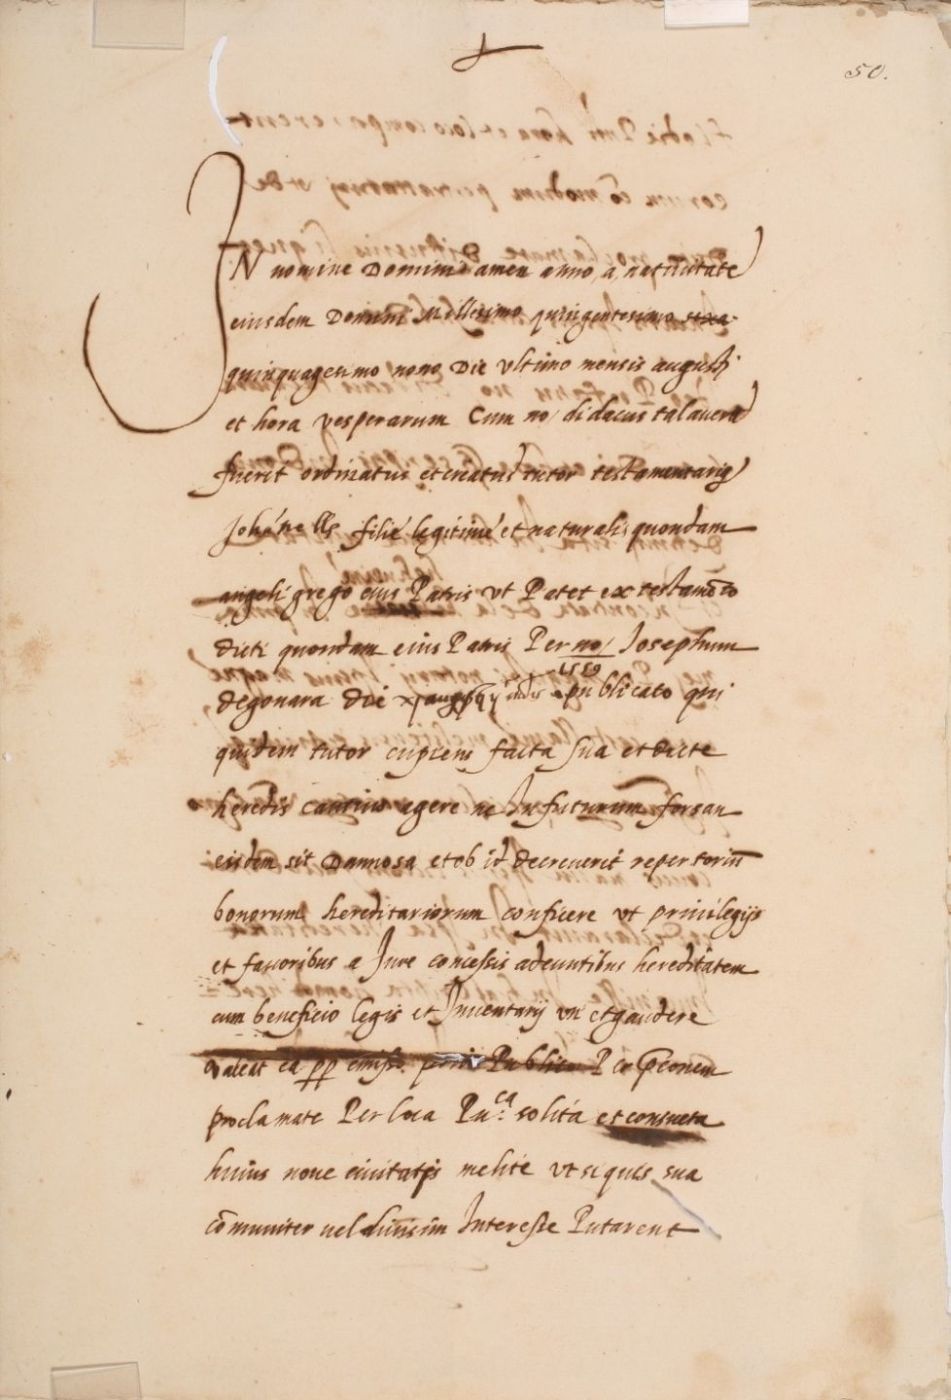 50.
IN nomine Domini amen anno a natiuitate
eiusdem Domini Millesimo quingentesimo
quinquagesimo nono Die vltimo mensis augusti
et hora vesperarum Cum no/ didacus talavera
fuerit ordinatus et creatus tutor testamentarius
filie legitime et naturalis quondam
angeli grego eius Patris vt Patet ex testamēto
dicti quondam eius Patris Per no/ Josephum
1559
degonara die publicato qui
quidem tutor cupiens facta sua et dicte
heredis cautius agere ne In futurum forsan
eidem sit Damnosa et ob id decreuerit repertoriū
bonorum hereditariorum conficere vt priuilegijs
et fauoribus a Jure concessis adeuntibus hereditatem
cum beneficio legis et Inuentarij vti et gaudere
valeat ea pp emisso Publico
proclamate Per loca Pu.ca solita et consueta
huius noue ciuitatis melite vt si quis sua
cōmuniter uel diuisim Interesse Putarent